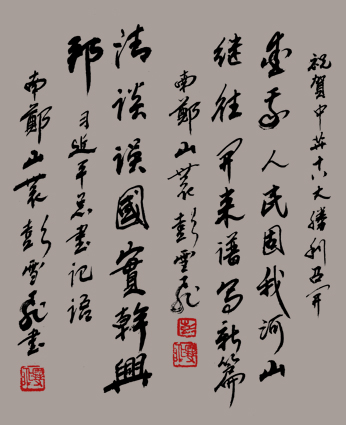 祝賀中共十八大勝利召開
愛我人民固我河山
继往開来谱寫新篇
南鄭山農彭雪飛
清談誤國實幹興
邦
習近平总書記語
南鄭山農彭雪飛書